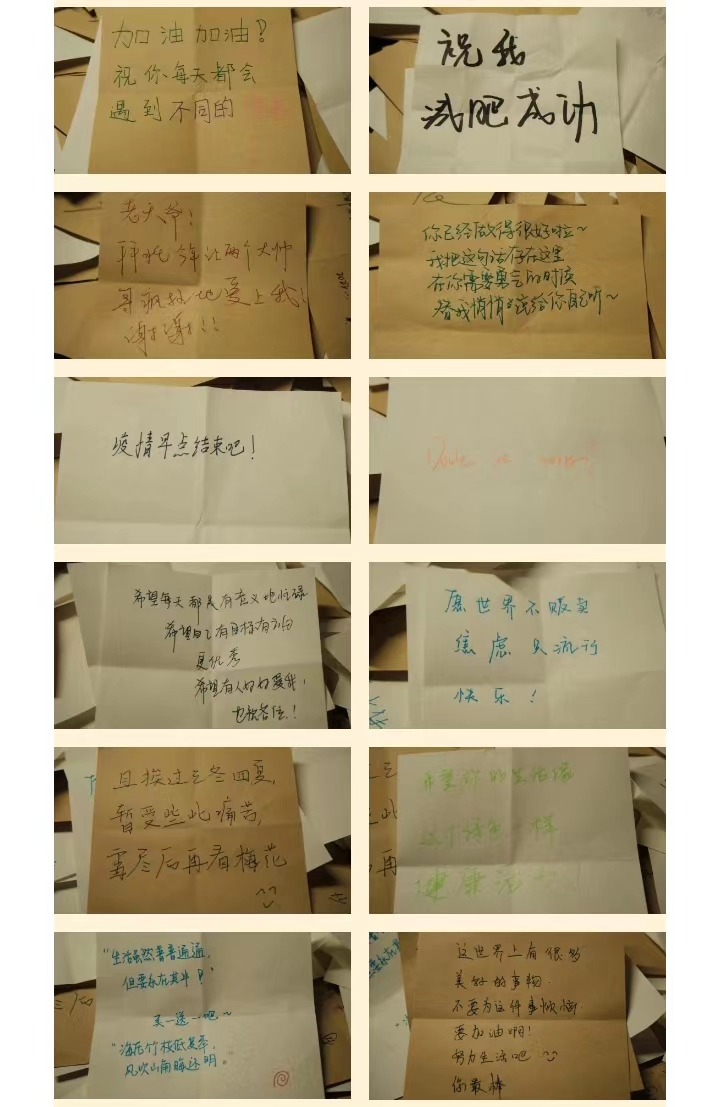 加油加油！
祝你每天都会
遇到不同的
祝我
减肥成功
老天爷！
拜托今年让两个大帅
哥疯狂地爱上我！
谢谢！！！
你已经做得很好啦～
我把这句话存在这里
在你需要勇气的时候
替我悄悄说给你自己听～
疫情早点结束吧！
希望每天都是有意义地忙碌
希望自己有目标有方向
更优秀
希望有人好好爱我，
也祝各位！
愿世界不贩卖
焦虑只流行
快乐！
且挨过三冬四夏，
暂受些此痛苦，
雪尽后再看梅花
希望你的生活像
这个绿色一样
健康活
“生活虽然普普通通，
但要乐在其中！”
买一送一吧～
“海压竹枝低复举，
风吹山角晦还明。
这世界上有很多
美好的事物.
不要为这件事烦恼.
要加油啊！
努力生活吧
你最棒